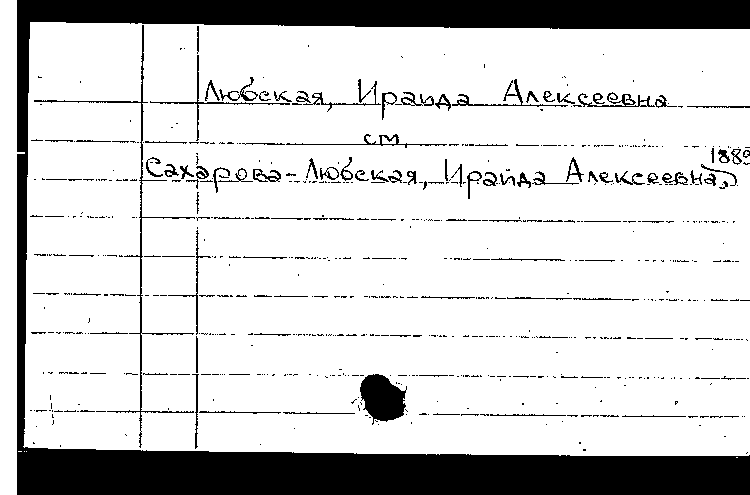 Любская, Ираида Алексеевна
см.
Сахарова-Любская, Ираида Алексеевна, 1889